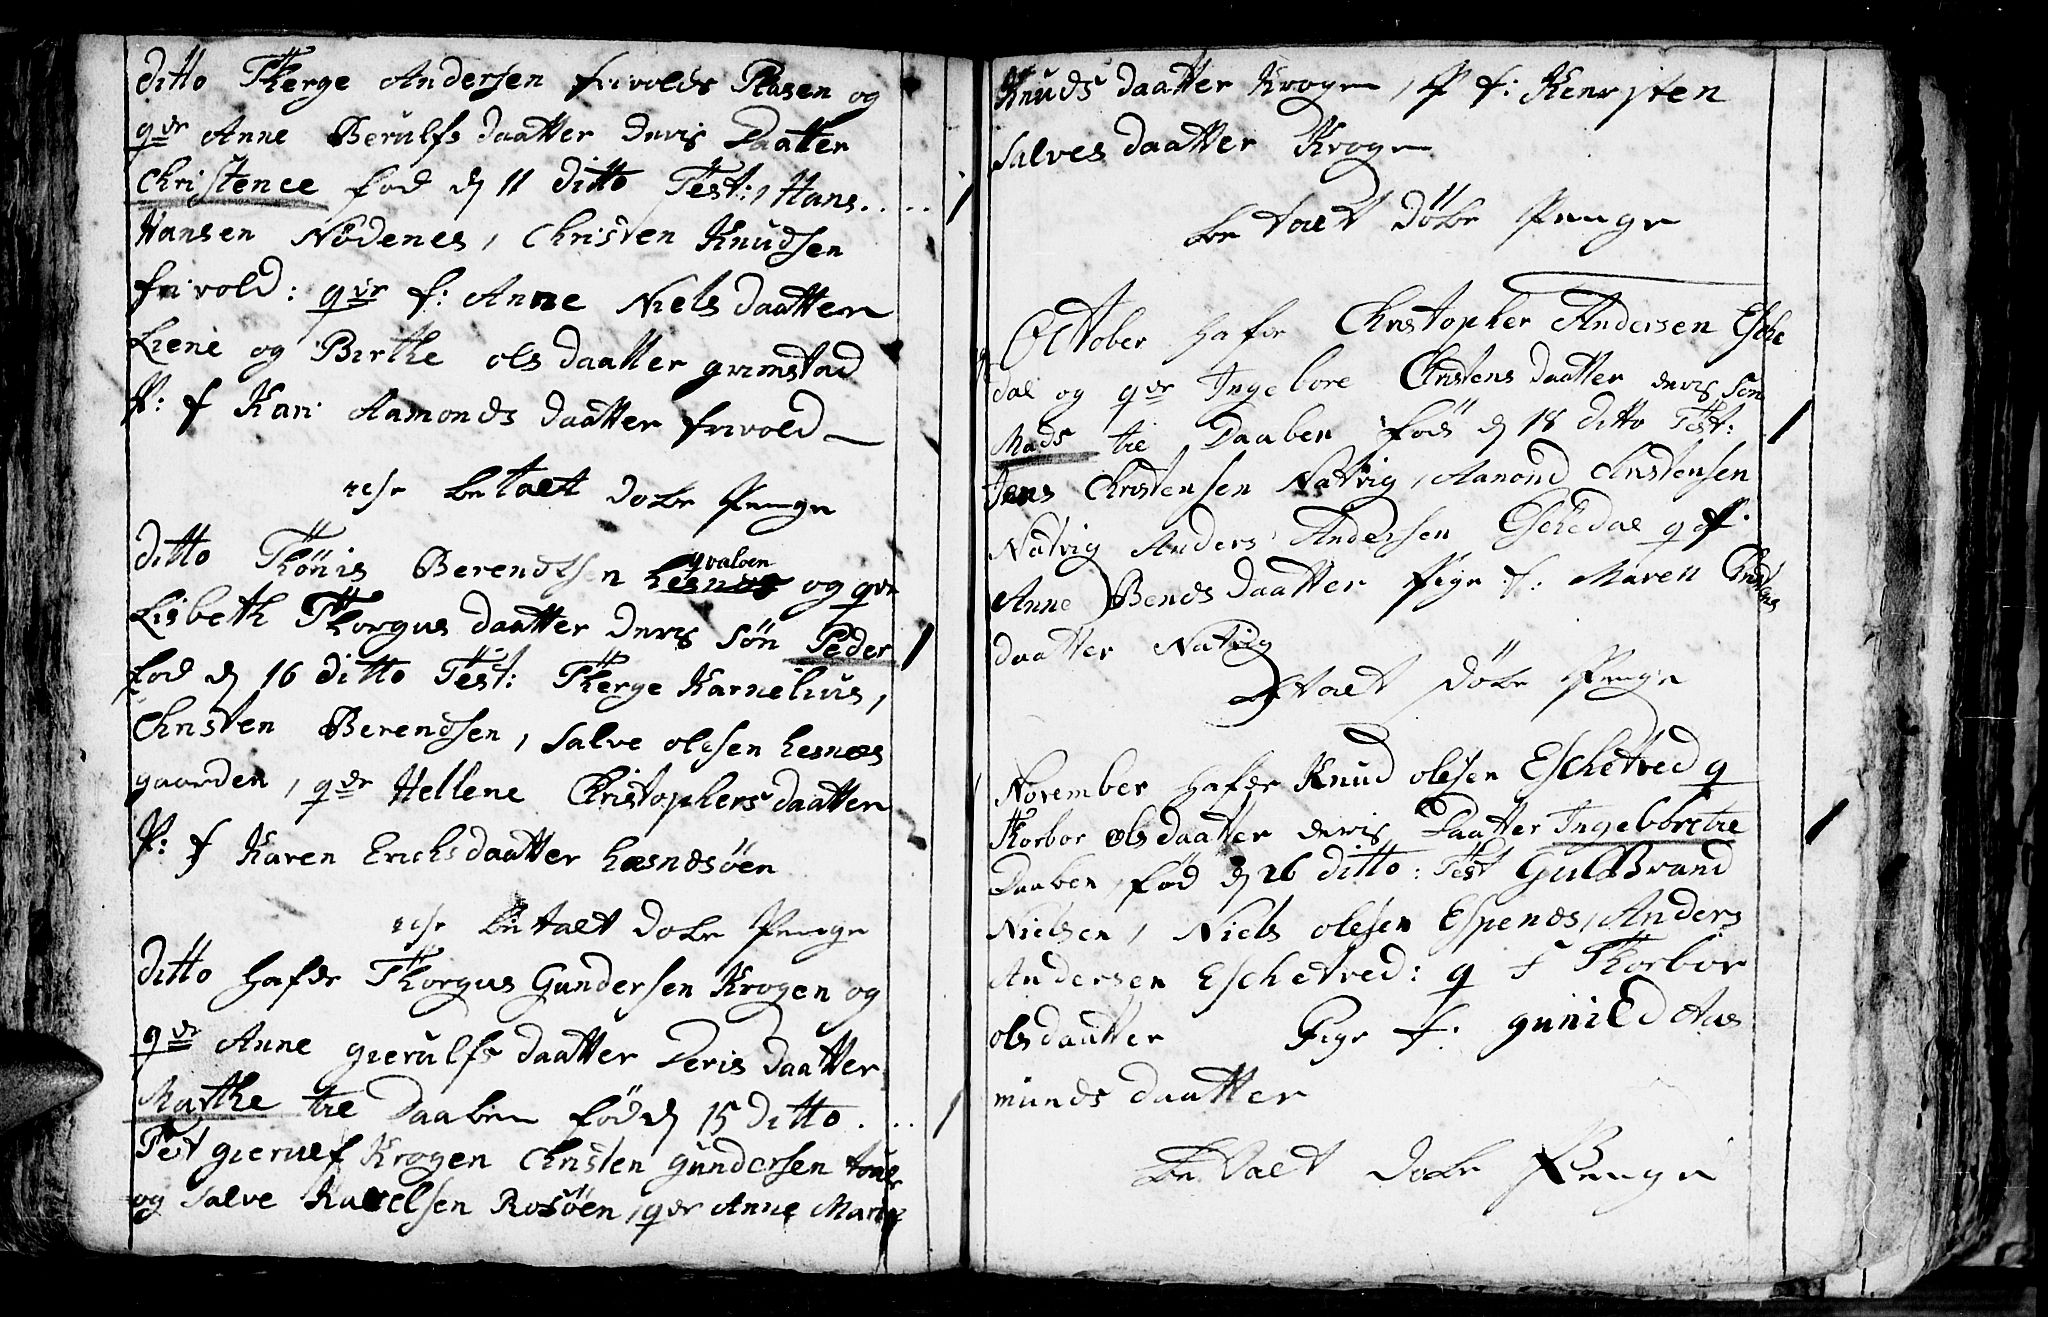 Ditto Therge Andersen frivolds Plasen og
qvr Anne Berulfs daatter deris Daatter
Christence fød d 11 ditto Test: / Hans
Hansen Nødenes, Christen Knudsen
frivold: qvr f: Anne Niels daatter
Liene og Birthe ols daatter grimstad
P: f Kari Aamonds daatter frivold
betalt døbe Penge
Ditto Thønis Berendtsen qvaløen og qvr
Lisbeth Thorgus daatter deris søn Peder
fød d 16 ditto Test: Therge Karnelius,
Christen Berendsen, salve olesen hesnæs
gaarden, qvr Hellene Christophers daatter
P: f Karen Erichs daatter hæsnæsøen
betalt døbe Penge
Ditto hafde Thorgus Gundersen Krogen og
qvr Anne gierulfs daatter Deris daatter
Marthe til Daaben fød d 15 ditto
Test gierulf Krogen Christen gundersen
og salve Kaxelsen Rosøen, qvr Anne Marthe
Knuds daatter Krogen, P f: Kenrsten
salves daatter Krogen
betalt døbe Penge
October hafde Christopher Andersen Esche
dal og qvr Ingebore Christens daatter deris søn
Mads til Daaben fød d 18 ditto Test:
Jens Christensen Natvig, Aamond Christensen
Natvig Anders Andersen Eschedal q f:
Anne Bends daatter Pige f: Maren Christens
daatter Natvig
betalt døbe Penge
November hafde Knud olesen Eschetved q
Thorbor ols daatter deris Daatter Ingebor til
Daaben, fød d 26 ditto: Test Guldbrand
Nielsen, Niels olesen Espenes, Anders
Andersen Eschetved: q f Thorbor
ols daatter Pige f: gunild Aas
munds daatter
betalt døbe Penge